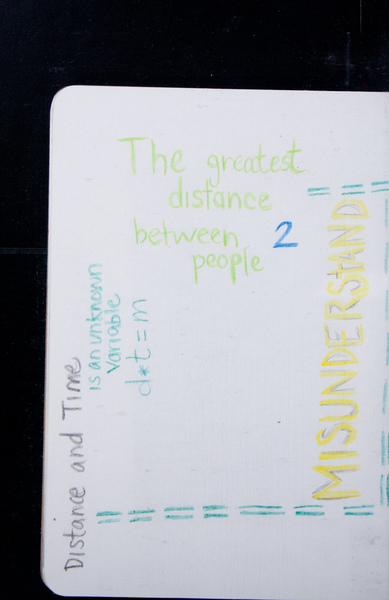 The greatest
distance
between 2
people
Distance and Time
is an unknown
variable
d*t=m
MISUNDERSTAND